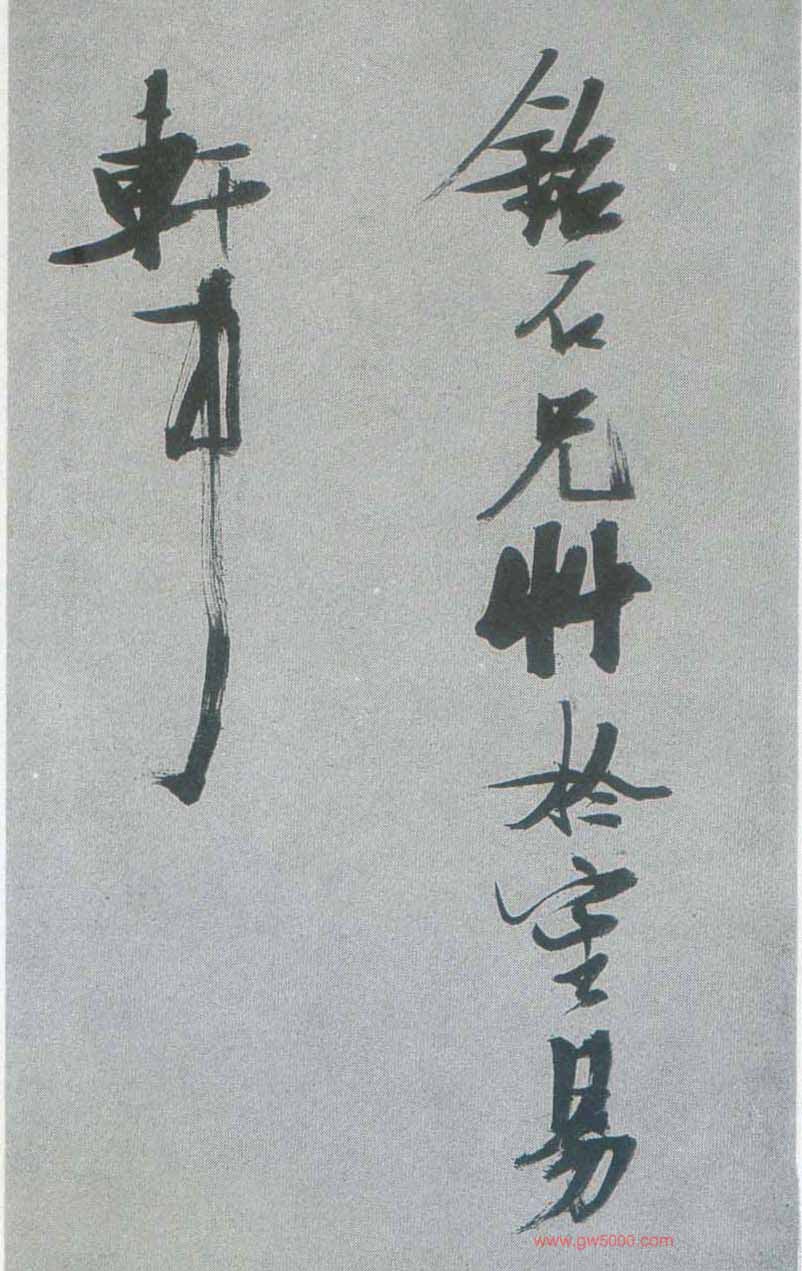 銘石兄艸於室易
軒
www.gw5000.com